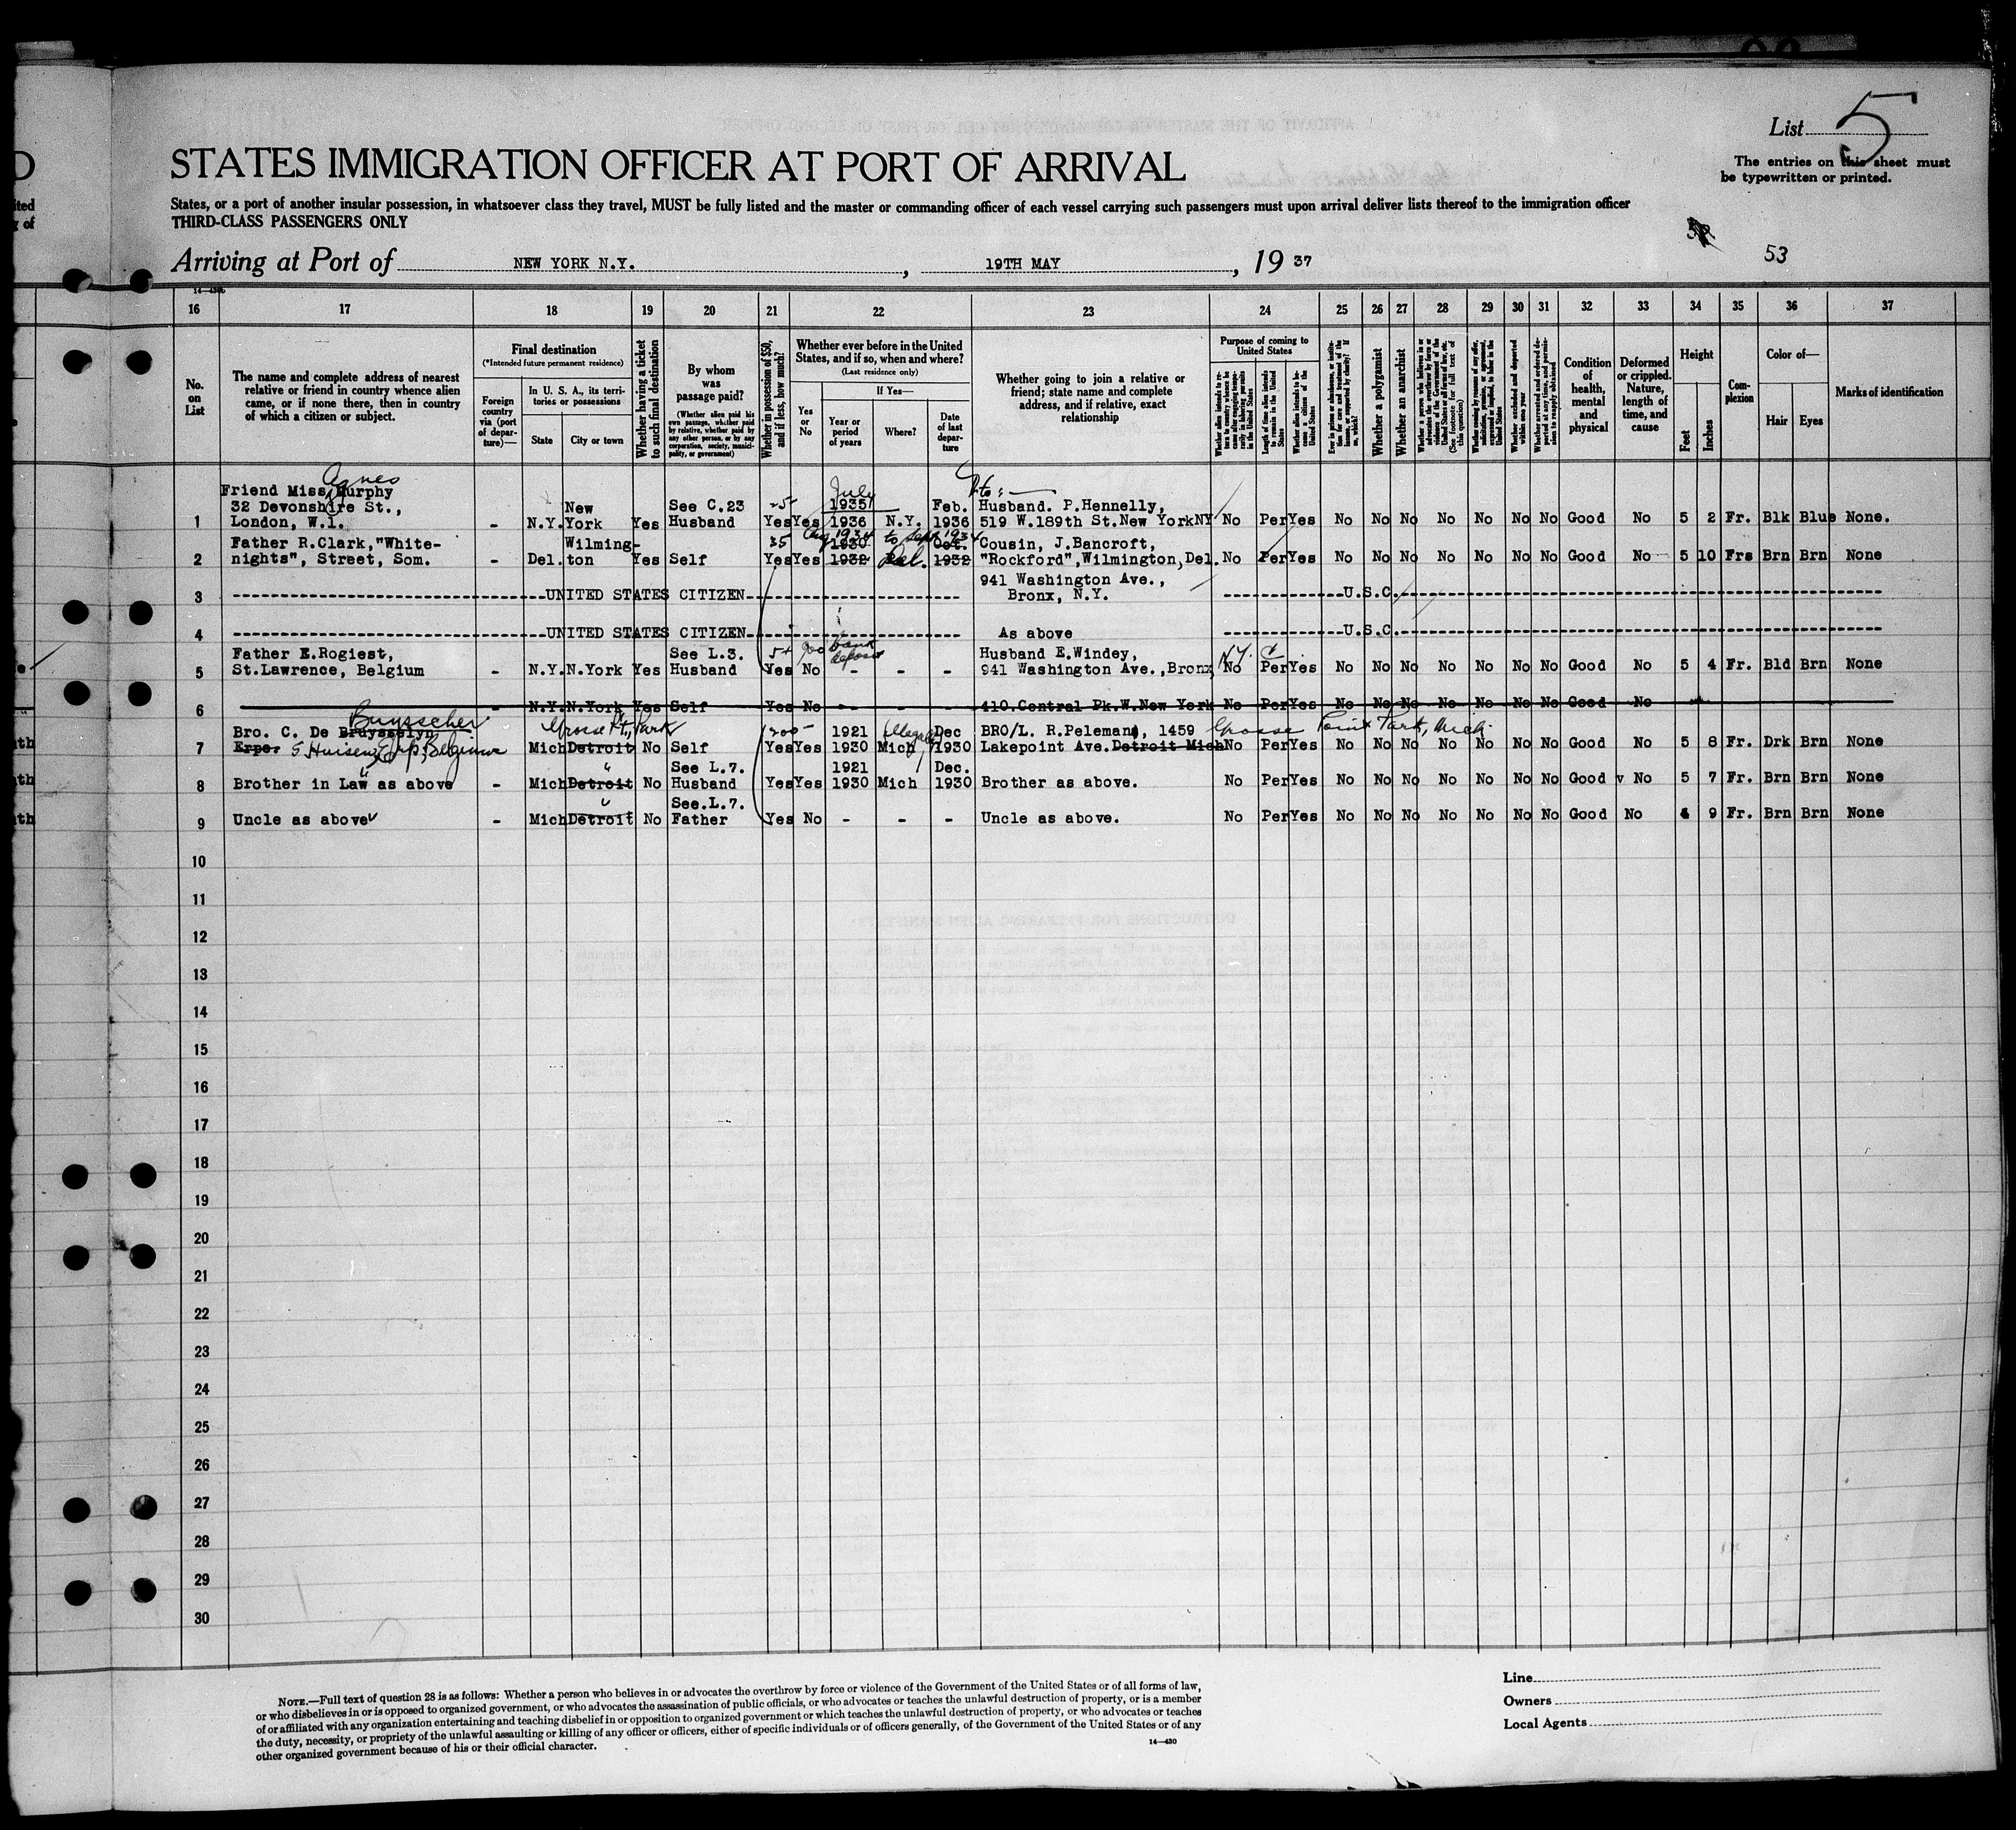 List 5
The entries on this sheet must
be typewritten or printed.
STATES IMMIGRATION OFFICER AT PORT OF ARRIVAL
States, or a port of another insular possession, in whatsoever class they travel, MUST be fully listed and the master or commanding officer of each vessel carrying such passengers must upon arrival deliver lists thereof to the immigration officer
THIRD-CLASS PASSENGERS ONLY
53
Arriving at Port of NEW YORK N.Y. , 19TH MAY , 19 37
16 17 18 19 20 21 22 23 24 25 26 27 28 29 30 31 32 33 34 35 36 37
No. on List
The name and complete address of nearest relative or friend in country whence alien came, or if none there, then in country of which a citizen or subject.
Final destination
(*Intended future permanent residence)
Foreign country via (port of departure)—
In U. S. A., its territories or possessions
State
City or town
Whether having a ticket to such final destination
By whom was passage paid?
(Whether alien paid his own passage, whether paid by relative, whether paid by any other person, or by any corporation, society, municipality, or government)
Whether in possession of $50, and if less, how much?
Whether ever before in the United States, and if so, when and where?
(Last residence only)
Yes or No
If Yes—
Year or period of years
Where?
Date of last departure
Whether going to join a relative or friend; state name and complete address, and if relative, exact relationship
Purpose of coming to United States
Length of time alien intends to remain in the United States
Whether alien intends to become a citizen of the United States
Whether a polygamist
Whether an anarchist
(See footnote for full text of this question)
Whether excluded and deported within one year
Condition of health, mental and physical
Deformed or crippled. Nature, length of time, and cause
Height
Feet
Inches
Complexion
Color of—
Hair
Eyes
Marks of identification
Agnes
Friend Miss Murphy July
32 Devonshire St., New See C.23 25 1935 Feb. Husband. P.Hennelly,
1 London, W.1. - N.Y. York Yes Husband Yes Yes 1936 N.Y. 1936 519 W.189th St.New YorkNY No Per Yes No No No No No No No Good No 5 2 Fr. Blk Blue None.
Father R.Clark,"White- Wilming- 35 1930 Oct. Cousin, J.Bancroft,
2 nights", Street, Som. - Del. ton Yes Self Yes Yes 1932 Del. 1932 "Rockford",Wilmington,Del. No Per Yes No No No No No No No Good No 5 10 Frs Brn Brn None
941 Washington Ave.,
3 UNITED STATES CITIZEN Bronx, N.Y. U.S.C.
4 UNITED STATES CITIZEN As above U.S.C.
Father E.Rogiest, See L.3. bank deposit Husband E.Windey,
5 St.Lawrence, Belgium - N.Y. N.York Yes Husband Yes No - - - 941 Washington Ave.,Bronx, N.Y. No Per Yes No No No No No No No Good No 5 4 Fr. Bld Brn None
6 - N.Y. N.York Yes Self Yes No 410.Central Pk.W.New York No Per Yes No No No No No No No Good No
Buysscher
Bro. C. De Bruysselyn Grosse Pt. Park 200 1921 Dec BRO/L. R.Peleman, 1459 Grosse Point Park, Mich.
7 Erpe. Belgium Mich Detroit No Self Yes Yes 1930 Mich 1930 Lakepoint Ave. Detroit Mich No Per Yes No No No No No No No Good No 5 8 Fr. Drk Brn None
" See L.7. 1921 Dec.
8 Brother in Law as above - Mich Detroit No Husband Yes Yes 1930 Mich 1930 Brother as above. No Per Yes No No No No No No No Good No 5 7 Fr. Brn Brn None
" See.L.7.
9 Uncle as above - Mich Detroit No Father Yes No - - - Uncle as above. No Per Yes No No No No No No No Good No 4 9 Fr. Brn Brn None
10
11
12
13
14
15
16
17
18
19
20
21
22
23
24
25
26
27
28
29
30
NOTE.—Full text of question 28 is as follows: Whether a person who believes in or advocates the overthrow by force or violence of the Government of the United States or of all forms of law,
or who disbelieves in or is opposed to organized government, or who advocates the assassination of public officials, or who advocates or teaches the unlawful destruction of property, or is a member
of or affiliated with any organization entertaining and teaching disbelief in or opposition to organized government or which teaches the unlawful destruction of property, or who advocates or teaches
the duty, necessity, or propriety of the unlawful assaulting or killing of any officer or officers, either of specific individuals or of officers generally, of the Government of the United States or of any
other organized government because of his or their official character.
14—430
Line
Owners
Local Agents